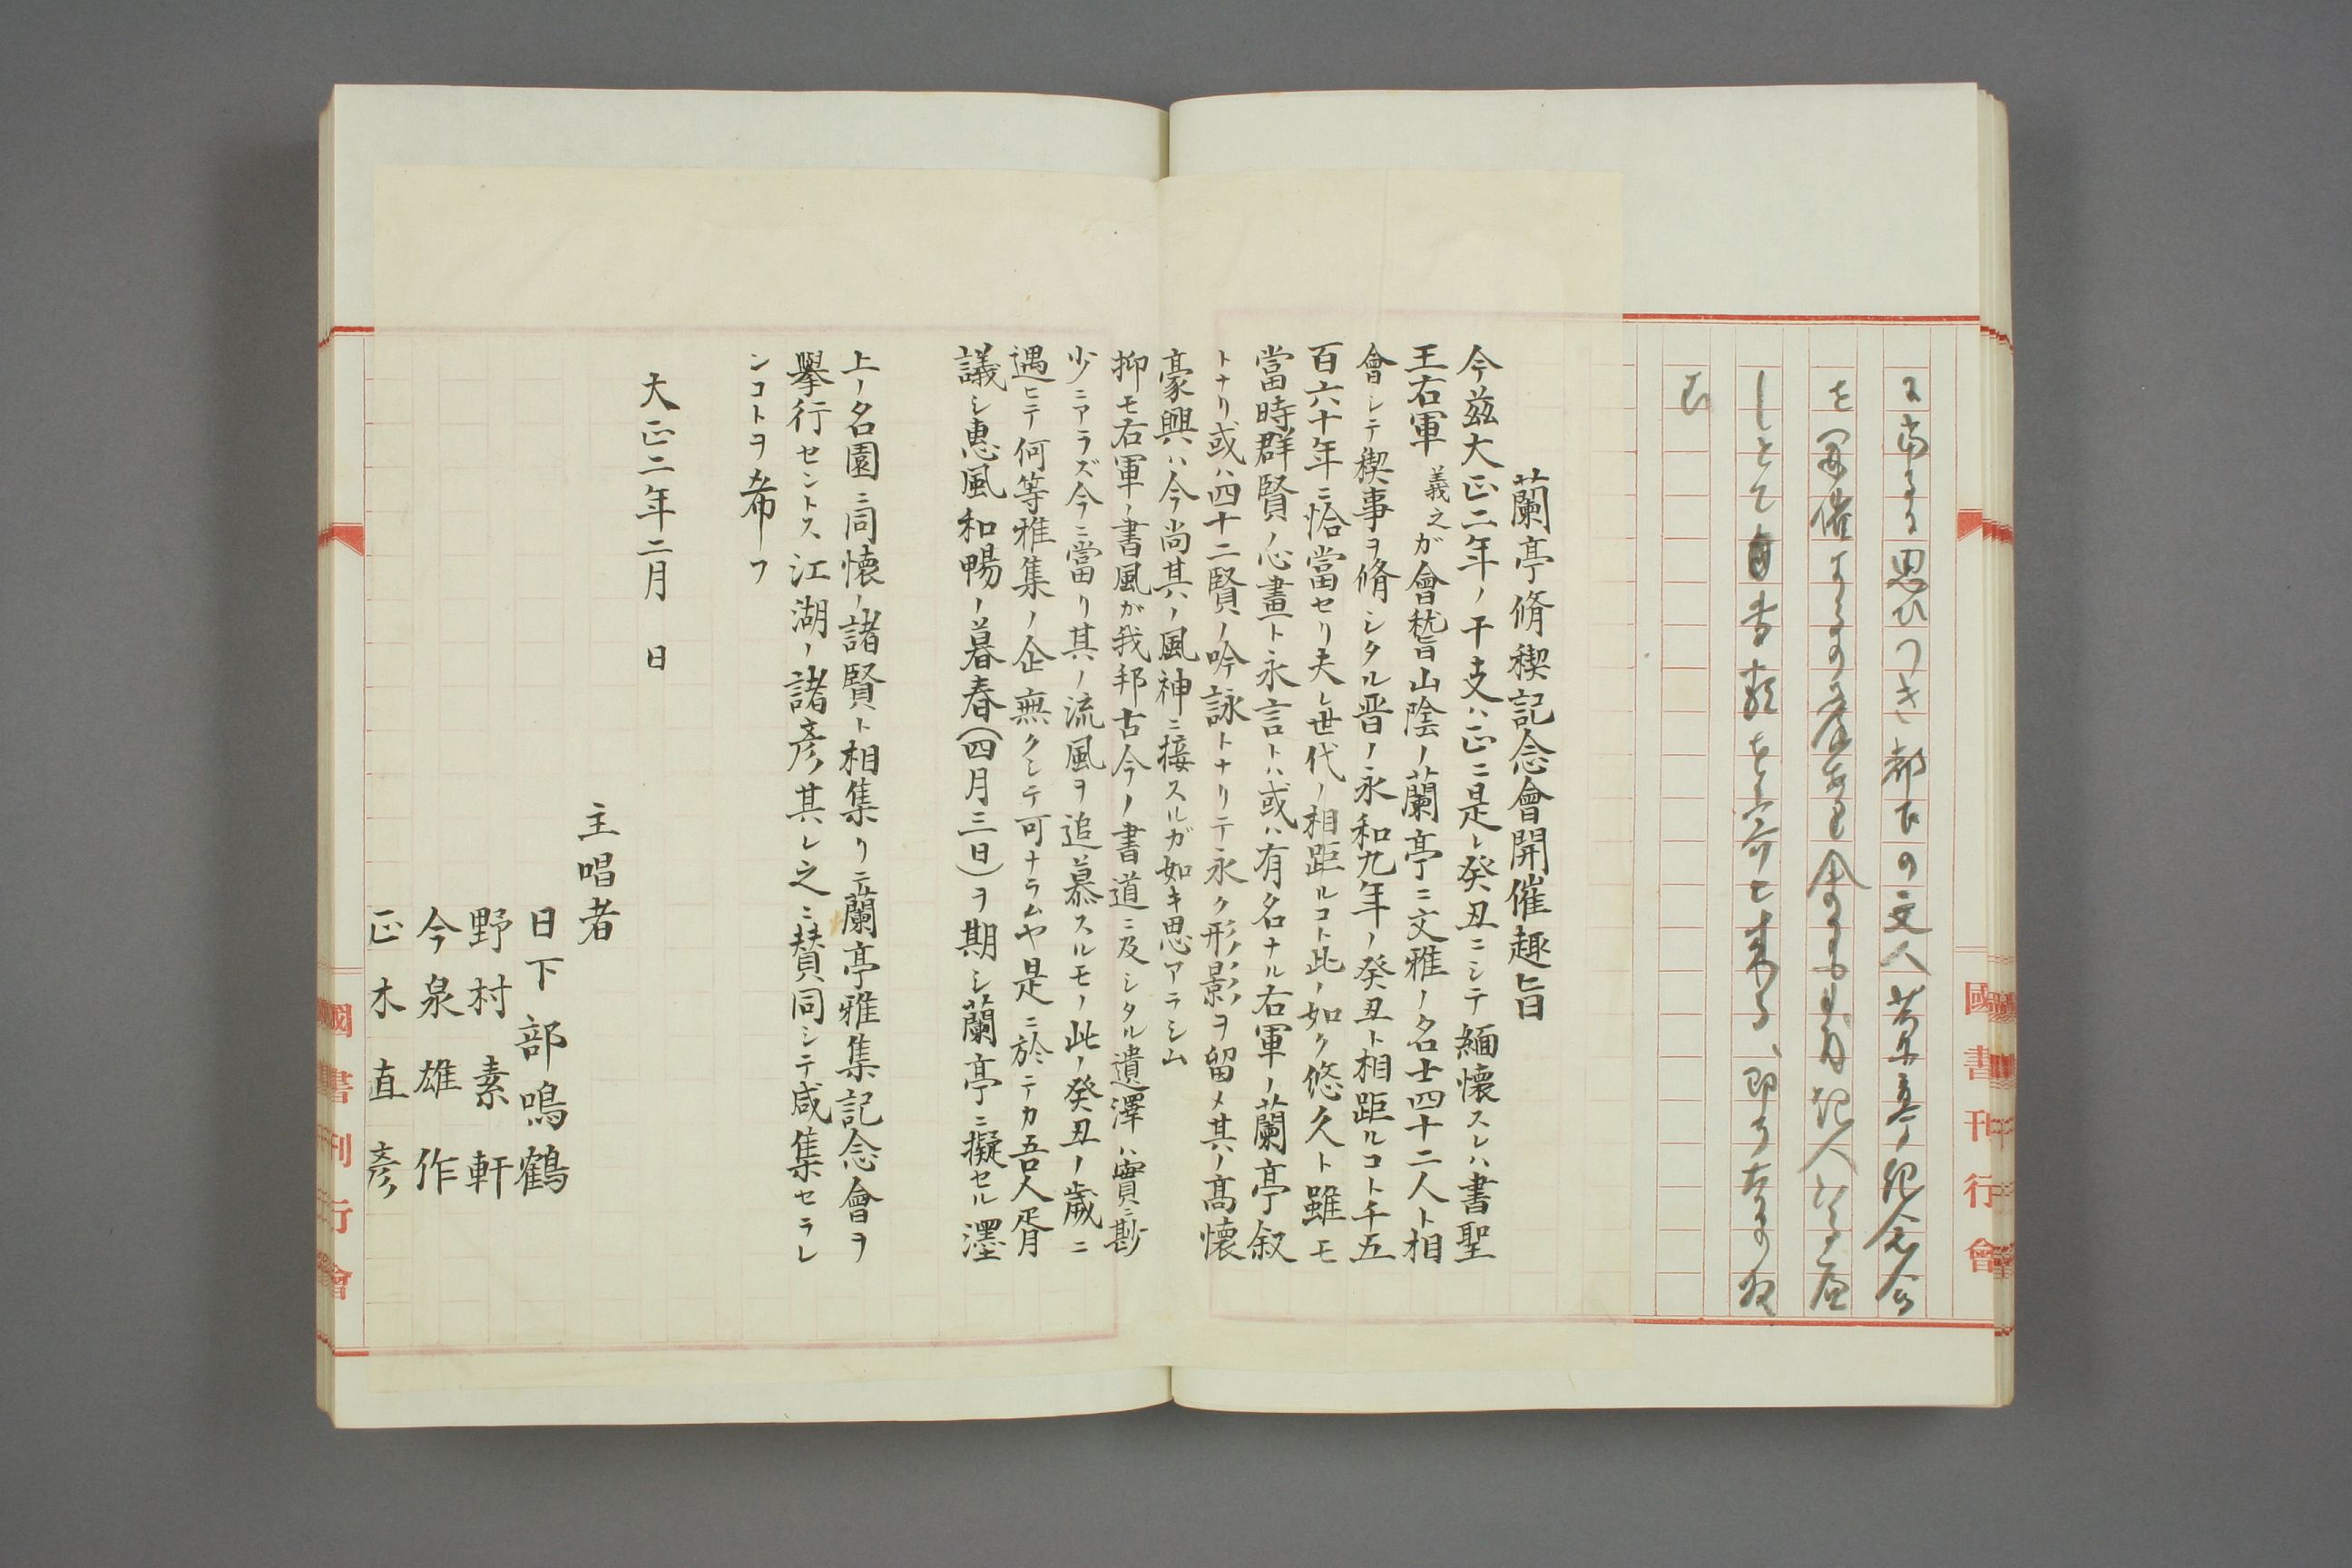 に当るに思ひつき都下の文人蘭亭記念会
を開催するの
しとて自
む
蘭亭脩禊記念會開催趣旨
今茲大正二年ノ干支ハ正ニ是レ癸丑ニシテ緬懐スレハ書聖
王右軍義之が會嵇山陰ノ蘭亭ニ文雅ノ名士四十二人ト相
會シテ禊事ヲ脩シタル晋ノ永和九年ノ癸丑ト相距ルコト千五
百六十年ニ恰當セリ夫レ世代ノ相距ルコト此ノ如ク悠久ト雖モ
當時群賢ノ心畫ト永言トハ或ハ有名ナル右軍ノ蘭亭叙
トナリ或ハ四十二賢ノ吟詠トナリテ永ク形影ヲ留メ其ノ高懐
豪興ハ今尚其ノ風神ニ接スルガ如キ思アラシム
抑モ右軍ノ書風ガ我邦古今ノ書道ニ及シタル遺澤ハ實ニ尠
少ニアラズ今ニ當リ其ノ流風ヲ追慕スルモノ此ノ癸丑ノ歳ニ
遇ヒテ何等雅集ノ企無クシテ可ナラムヤ是ニ於テカ吾人胥
議シ惠風和暢ノ暮春(四月三日)ヲ期シ蘭亭ニ擬セル墨
上ノ名園ニ同懐ノ諸賢ト相集リテ蘭亭雅集記念會ヲ
擧行セントス江湖ノ諸彦其レ之ニ賛同シテ咸集セラレ
ンコトヲ希フ
大正二年二月 日
主唱者
日下部鳴鶴
野村素軒
今泉雄作
正木直彦
國書刊行會
國書刊行會